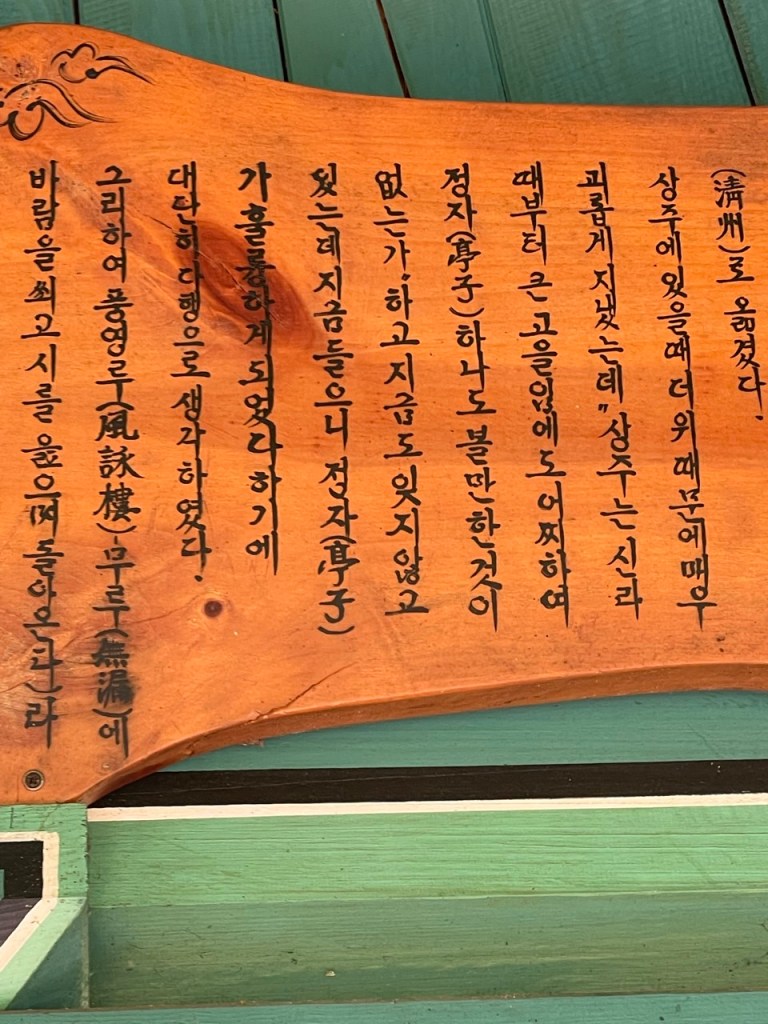 (淸州)로 옮겼다.
상주에 있을때 더위 때문에 매우
괴롭게 지냈는데 "상주는 신라
때부터 큰 고을임에도 어찌하여
정자(亭子)하나도 볼만한 것이
없는가"하고 지금도 잊지않고
있는데 지금들으니 정자(亭子)
가 훌륭하게 되었다 하기에
대단히 다행으로 생각하였다.
그리하여 풍영루(風詠樓)-무루(無漏)에
바람을 쐬고 시를 읊으며 돌아온다)라